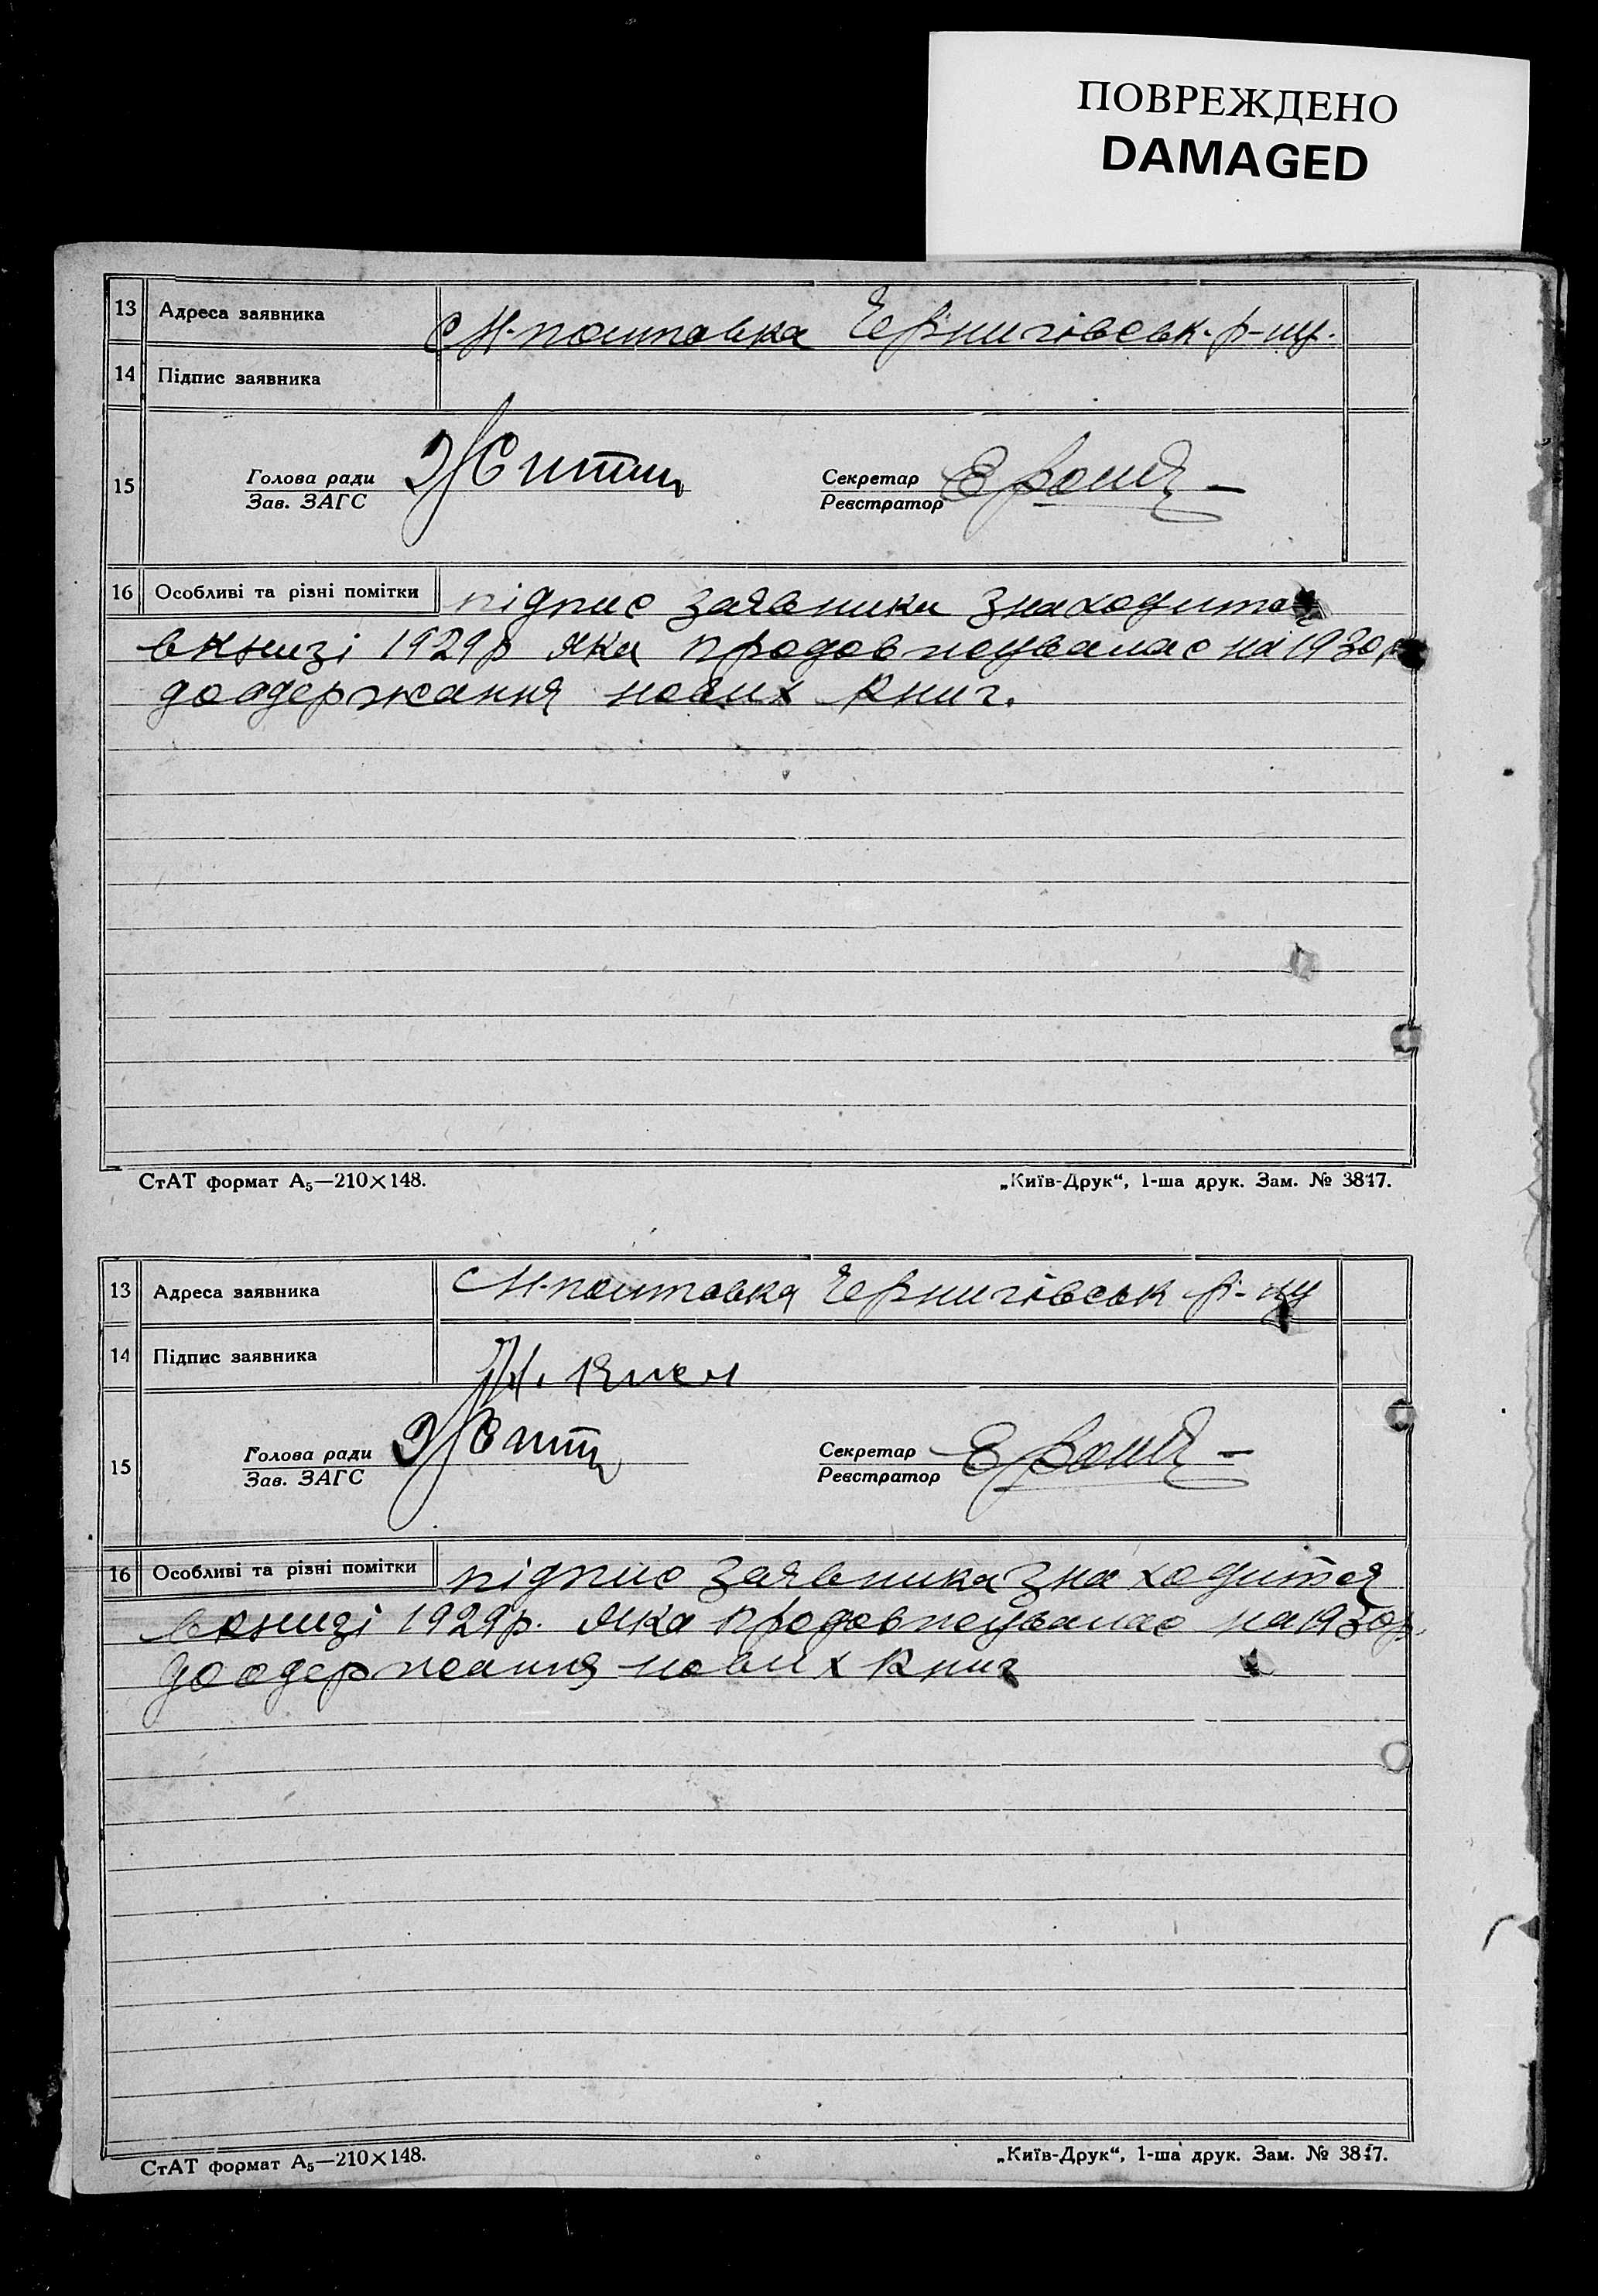 ПОВРЕЖДЕНО
DAMAGED
13 Адреса заявника с М-поштовка Чернигівськ. р-ну.
14 Підпис заявника
15 Голова ради Секретар
Зав. ЗАГС Реєстратор
16 Особливі та різні помітки підпис заявника знаходится
в книзі 1929р яка продовжувалас на 1930р
до одержання нових книг.
СтАТ формат А₅—210×148. „Київ-Друк“, 1-ша друк. Зам. № 3817.
13 Адреса заявника с М-поштовка Чернигівськ р-ну
14 Підпис заявника
15 Голова ради Секретар
Зав. ЗАГС Реєстратор
16 Особливі та різні помітки підпис заявника знаходится
в книзі 1929р. яка продовжувалас на 1930р.
до одержання нових книг
СтАТ формат А₅—210×148. „Київ-Друк“, 1-ша друк. Зам. № 3817.